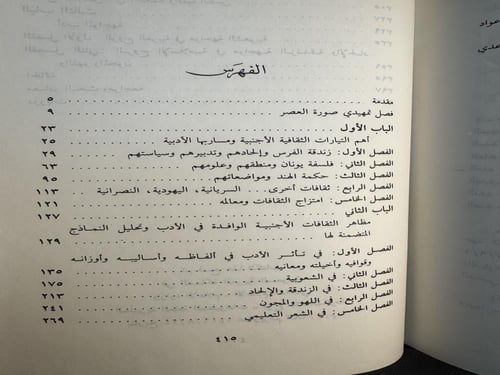 الفهرس
مقدمة ٥
فصل تمهيدي صورة العصر ٩
الباب الأول ٢٣
أهم التيارات الثقافية الأجنبية ومساربها الأدبية ٢٥
الفصل الأول: زندقة الفرس وإلحادهم وتدبيرهم وسياستهم ٢٩
الفصل الثاني: فلسفة يونان ومنطقهم وعلومهم ٦٣
الفصل الثالث: حكمة الهند ومواضعاتهم ٩٥
الفصل الرابع: ثقافات أخرى... السريانية، اليهودية، النصرانية ١١٣
الفصل الخامس: امتزاج الثقافات ومعالمه ١٢١
الباب الثاني ١٢٧
مظاهر الثقافات الأجنبية الوافدة في الأدب وتحليل النماذج
المتضمنة لها ١٢٩
الفصل الأول: في تأثر الأدب في ألفاظه وأساليبه وأوزانه
وقوافيه وأخيلته ومعانيه ١٣٥
الفصل الثاني: في الشعوبية ١٧٥
الفصل الثالث: في الزندقة والإلحاد ٢١٣
الفصل الرابع: في اللهو والمجون ٢٤١
الفصل الخامس: في الشعر التعليمي ٢٦٩
٤١٥